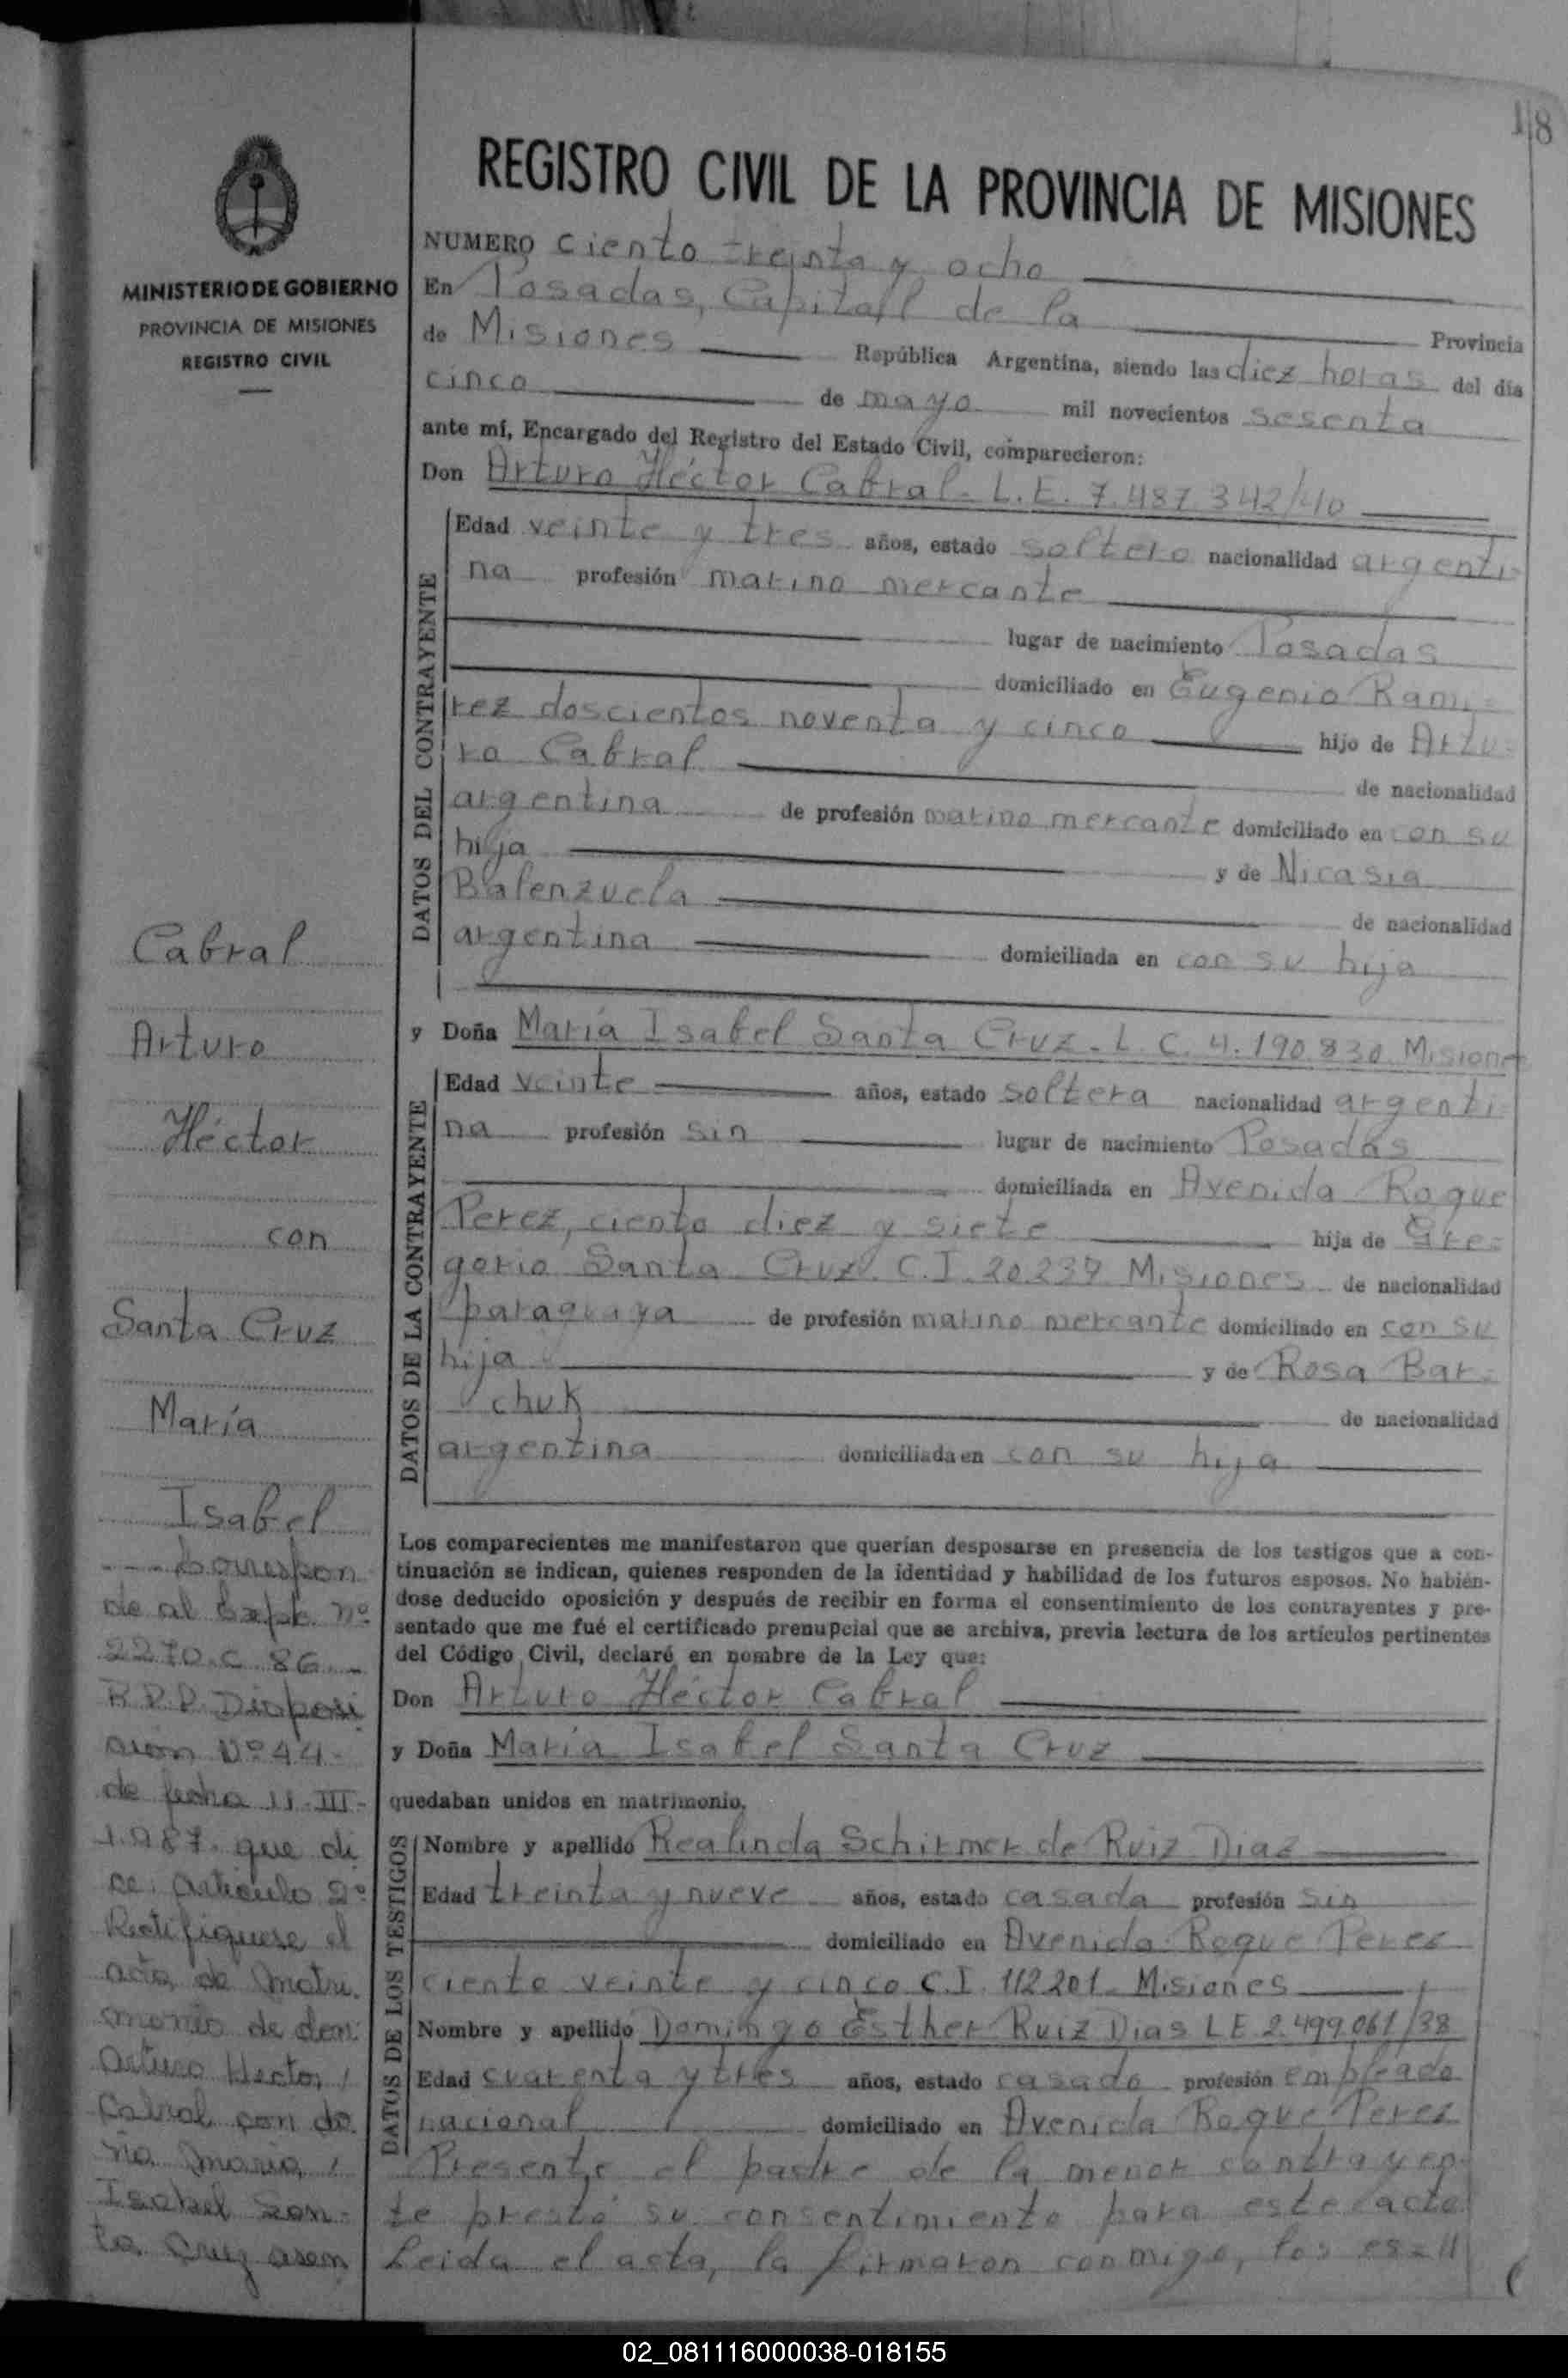 18
MINISTERIO DE GOBIERNO
PROVINCIA DE MISIONES
REGISTRO CIVIL
Cabral
Arturo
Héctor
con
Santa Cruz
María
Isabel
Correspon
de al Expte. nº
2270.C.86.-
R.P.P. Disposi
ción Nº 44-
de fecha 11-III-
1.987. que di
ce: Artículo 2º
Rectifíquese el
acta de matri.
monio de don:
Arturo Hector /
Cabral con do
ña María /
Isabel San=
ta Cruz asen
REGISTRO CIVIL DE LA PROVINCIA DE MISIONES
NUMERO ciento treinta y ocho
En Posadas, Capital de la Provincia
de Misiones República Argentina, siendo las diez horas del día
cinco de mayo mil novecientos sesenta
ante mí, Encargado del Registro del Estado Civil, comparecieron:
Don Arturo Héctor Cabral. L.E. 7.487.342/40
DATOS DEL CONTRAYENTE
Edad veinte y tres años, estado soltero nacionalidad argenti=
na profesión marino mercante
lugar de nacimiento Posadas
domiciliado en Eugenio Rami=
rez doscientos noventa y cinco hijo de Artu=
ro Cabral de nacionalidad
argentina de profesión marino mercante domiciliado en con su
hija y de Nicasia
Balenzuela de nacionalidad
argentina domiciliada en con su hija
y Doña María Isabel Santa Cruz. L. C. 4.190.830 Misiones
DATOS DE LA CONTRAYENTE
Edad veinte años, estado soltera nacionalidad argenti=
na profesión sin lugar de nacimiento Posadas
domiciliada en Avenida Roque
Perez, ciento diez y siete hija de Gre=
gorio Santa Cruz. C.I. 20.237 Misiones de nacionalidad
paraguaya de profesión marino mercante domiciliado en con su
hija y de Rosa Bar=
chuk de nacionalidad
argentina domiciliada en con su hija
Los comparecientes me manifestaron que querían desposarse en presencia de los testigos que a con-
tinuación se indican, quienes responden de la identidad y habilidad de los futuros esposos. No habién-
dose deducido oposición y después de recibir en forma el consentimiento de los contrayentes y pre-
sentado que me fué el certificado prenupcial que se archiva, previa lectura de los artículos pertinentes
del Código Civil, declaré en nombre de la Ley que:
Don Arturo Héctor Cabral
y Doña María Isabel Santa Cruz
quedaban unidos en matrimonio.
DATOS DE LOS TESTIGOS
Nombre y apellido Realinda Schirmer de Ruiz Diaz
Edad treinta y nueve años, estado casada profesión sin
domiciliado en Avenida Roque Perez
ciento veinte y cinco C.I. 112201. Misiones
Nombre y apellido Domingo Esther Ruiz Dias LE 2.499.061/38
Edad cuarenta y tres años, estado casado profesión empleado
nacional domiciliado en Avenida Roque Perez
Presente el padre de la menor contrayen=
te prestó su consentimiento para este acto
Leida el acta, la firmaron conmigo, los es=//
02_081116000038-018155